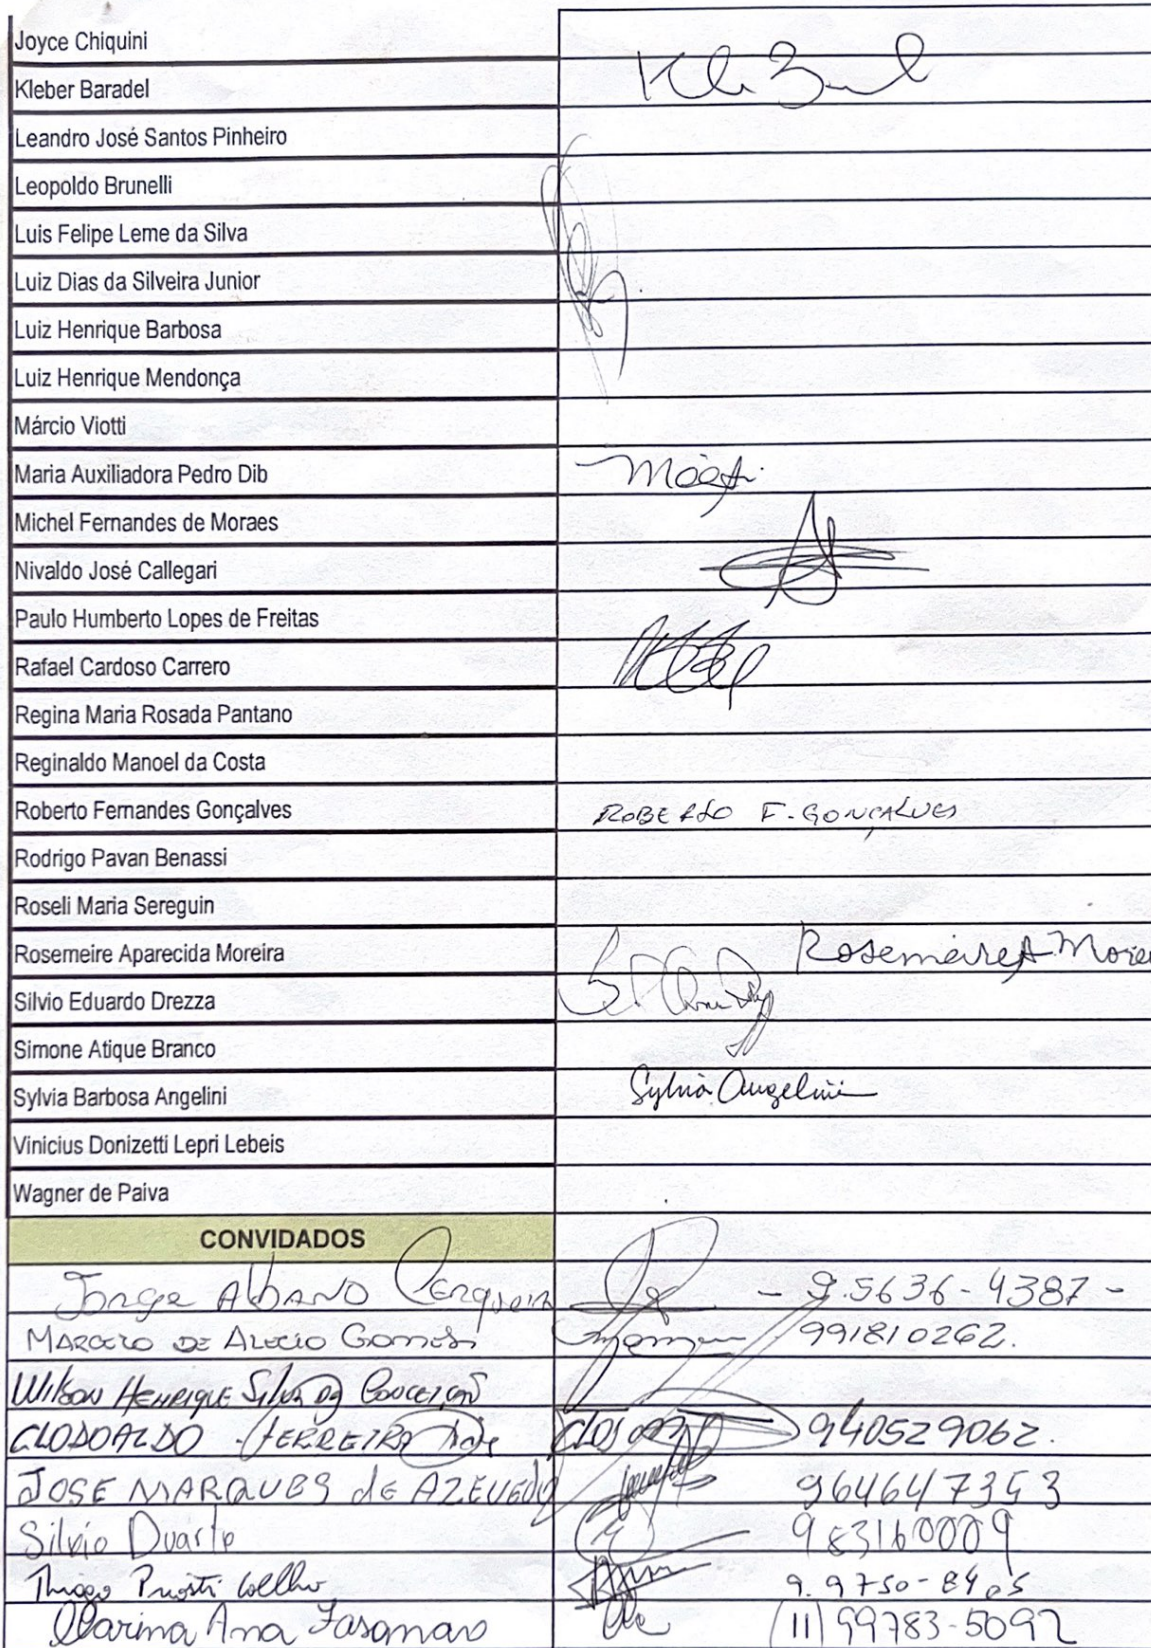 Joyce Chiquini
Kleber Baradel
Leandro José Santos Pinheiro
Leopoldo Brunelli
Luis Felipe Leme da Silva
Luiz Dias da Silveira Junior
Luiz Henrique Barbosa
Luiz Henrique Mendonça
Márcio Viotti
Maria Auxiliadora Pedro Dib
Michel Fernandes de Moraes
Nivaldo José Callegari
Paulo Humberto Lopes de Freitas
Rafael Cardoso Carrero
Regina Maria Rosada Pantano
Reginaldo Manoel da Costa
Roberto Fernandes Gonçalves ROBERTO F. GONÇALVES
Rodrigo Pavan Benassi
Roseli Maria Sereguin
Rosemeire Aparecida Moreira Rosemeire A. Morei
Silvio Eduardo Drezza
Simone Atique Branco
Sylvia Barbosa Angelini Sylvia Angelini
Vinicius Donizetti Lepri Lebeis
Wagner de Paiva
CONVIDADOS
Jorge AlbANO Cerqueira - 9.5636-4387 -
MARCELO DE ALECIO GOMES 991810262.
Wilson HENRIQUE Silva da Conceição
CLODOALDO FERREIRA 940529062.
JOSE MARQUES de AZEVEDO 964647353
Silvio Duarte 983160009
Thiago Coelho 9.9750-8405
Marina Ana Fasanaro (11) 99783-5092